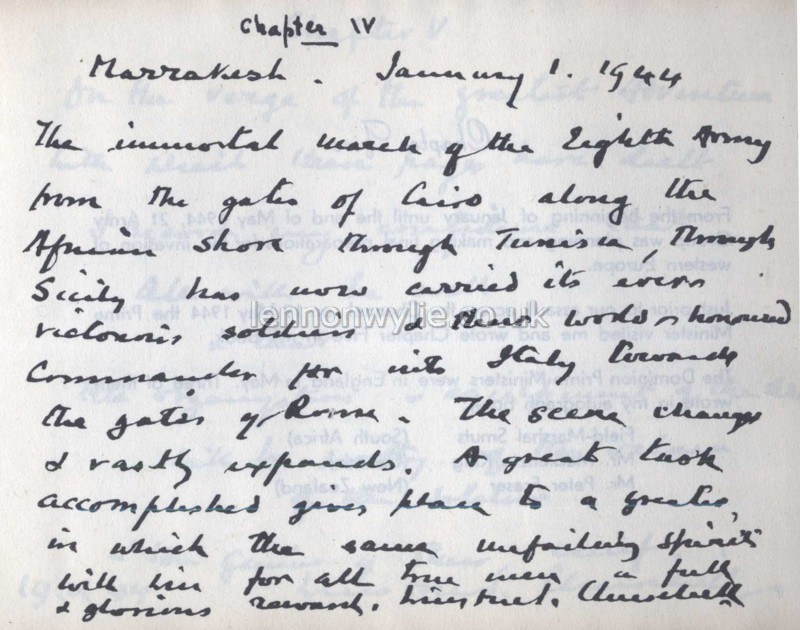 Chapter IV
Marrakesh. January 1. 1944
The immortal march of the Eighth Army
from the gates of Cairo along the
African shore through Tunisia, through
Sicily has now carried its ever
victorious soldiers & their world honoured
Commander far into Italy towards
the gates of Rome. The scene changes
& vastly expands. A great task
accomplished gives place to a greater,
in which the same unfailing spirit
will win for all true men a full
& glorious reward. Winston S. Churchill
lennonwylie.co.uk